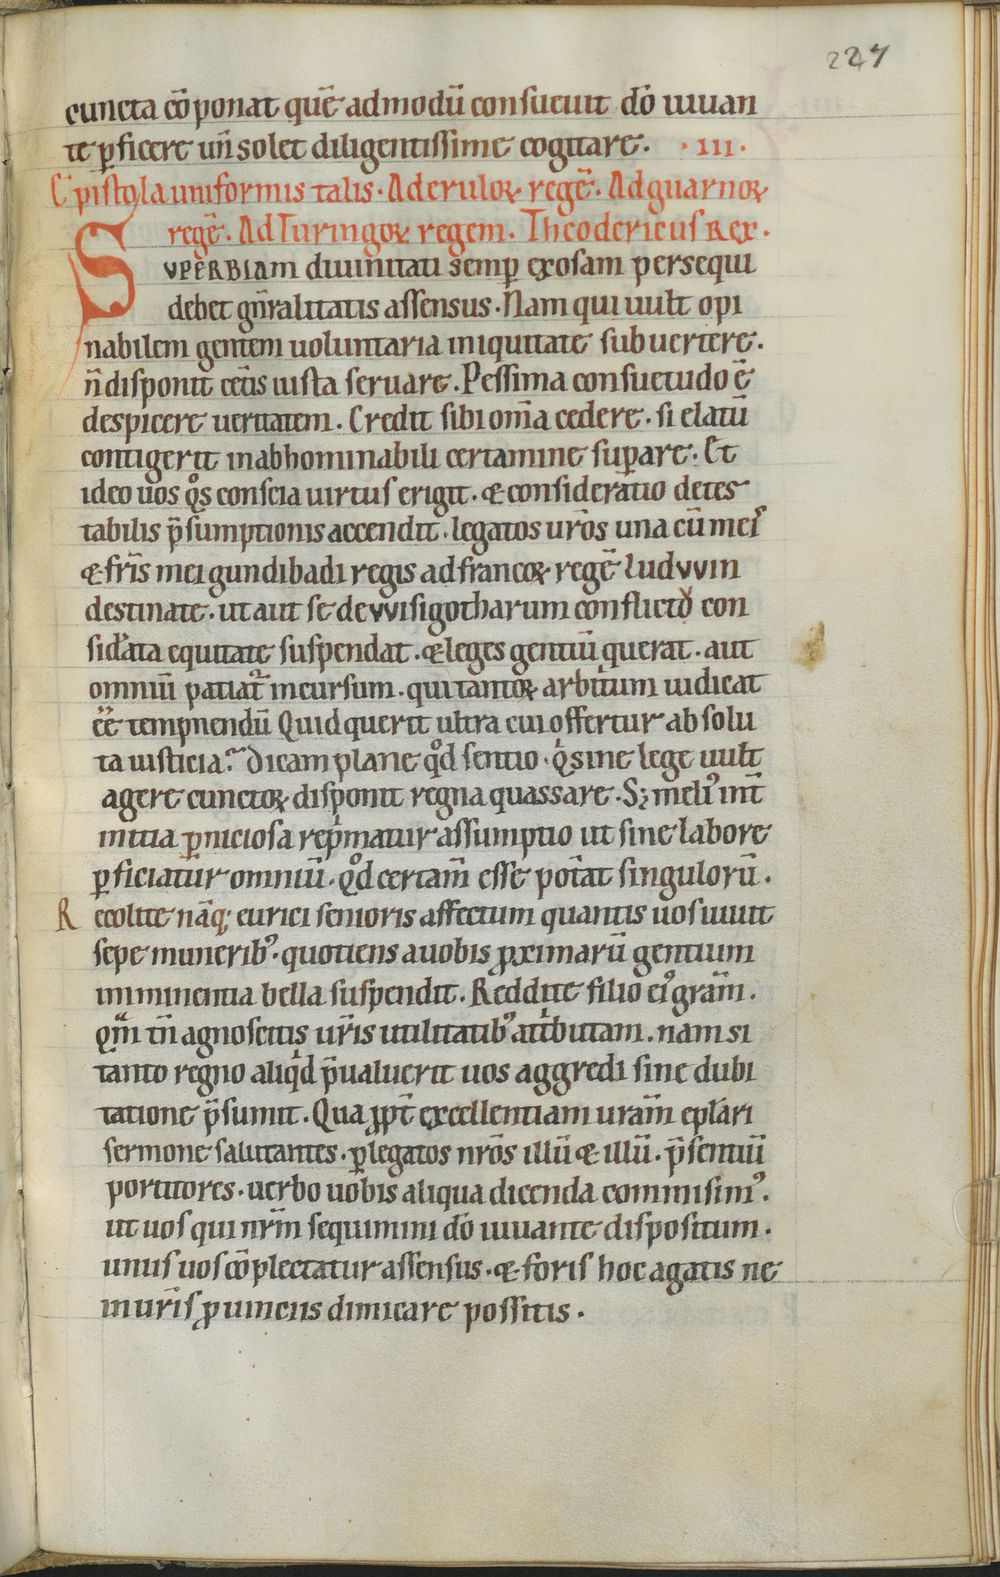 227
cuncta cōponat quē admodū consueuit dō iuuan
te ꝑficere uñ solet diligentissime cogitare. ·III·
Epistola uniformis talis. Ad eruloꝝ regē. Ad guarnoꝝ
regē. Ad Turingoꝝ regem. Theodericus Rex.
SVPERBIAM diuinitati semꝑ exosam persequi
debet gn̄ralitatis assensus. Nam qui uult opi
nabilem gentem uoluntaria iniquitate subuertere.
n̄ disponit cet̄is iusta seruare. Pessima consuetudo ē
despicere ueritatem. Credit sibi om̄a cedere. si elatū
contigerit inabhominabili certamine suꝑare. Et
ideo uos qͦs conscia uirtus erigit. & consideratio detes
tabilis p̄sumptionis accendit. legatos ur̄os una cū meis
& fr̄is mei gundibadi regis ad francoꝝ regē luduuin
destinate. ut aut se de uuisigotharum conflicto con
sid̄ata equitate suspendat. & leges gentiū querat. aut
omniū patiat᷑ incursum. qui tantoꝝ arbitͥum iudicat
eē tempnendū Quid querit ultra cui offertur absolu
ta iusticia? Dicam plane qͦd sentio. qͥ sine lege uult
agere cunctoꝝ disponit regna quassare. Sꝫ meliꝰ int̄
initia ꝑniciosa repͥmatur assumptio ut sine labore
ꝑficiatur omniū. qͦd certam̄ esse pot̄at singulorū.
Recolite nāqꝫ eurici senioris affectum quantis uos iuuit
sepe muneribꝰ. quotiens a uobis ꝓximarū gentium
imminentia bella suspendit. Reddite filio eiꝰ gram̄.
Qm̄ tn̄ agnoscitis ur̄is utilitatibꝰ attͥbutam. nam si
tanto regno aliqͥd p̄ualuerit uos aggredi sine dubi
tatione p̄sumit. Qua ꝓpt̄ excellentiam uram̄ epl̄ari
sermone salutantes. ꝑ legatos nr̄os illū & illū. p̄sentiū
portitores. uerbo uobis aliqua dicenda commisimꝰ.
ut uos qui nrm̄ sequimini dō iuuante dispositum.
unus uos cōplectatur assensus. & foris hoc agatis ne
in ur̄is ꝓuinciis dimicare possitis.